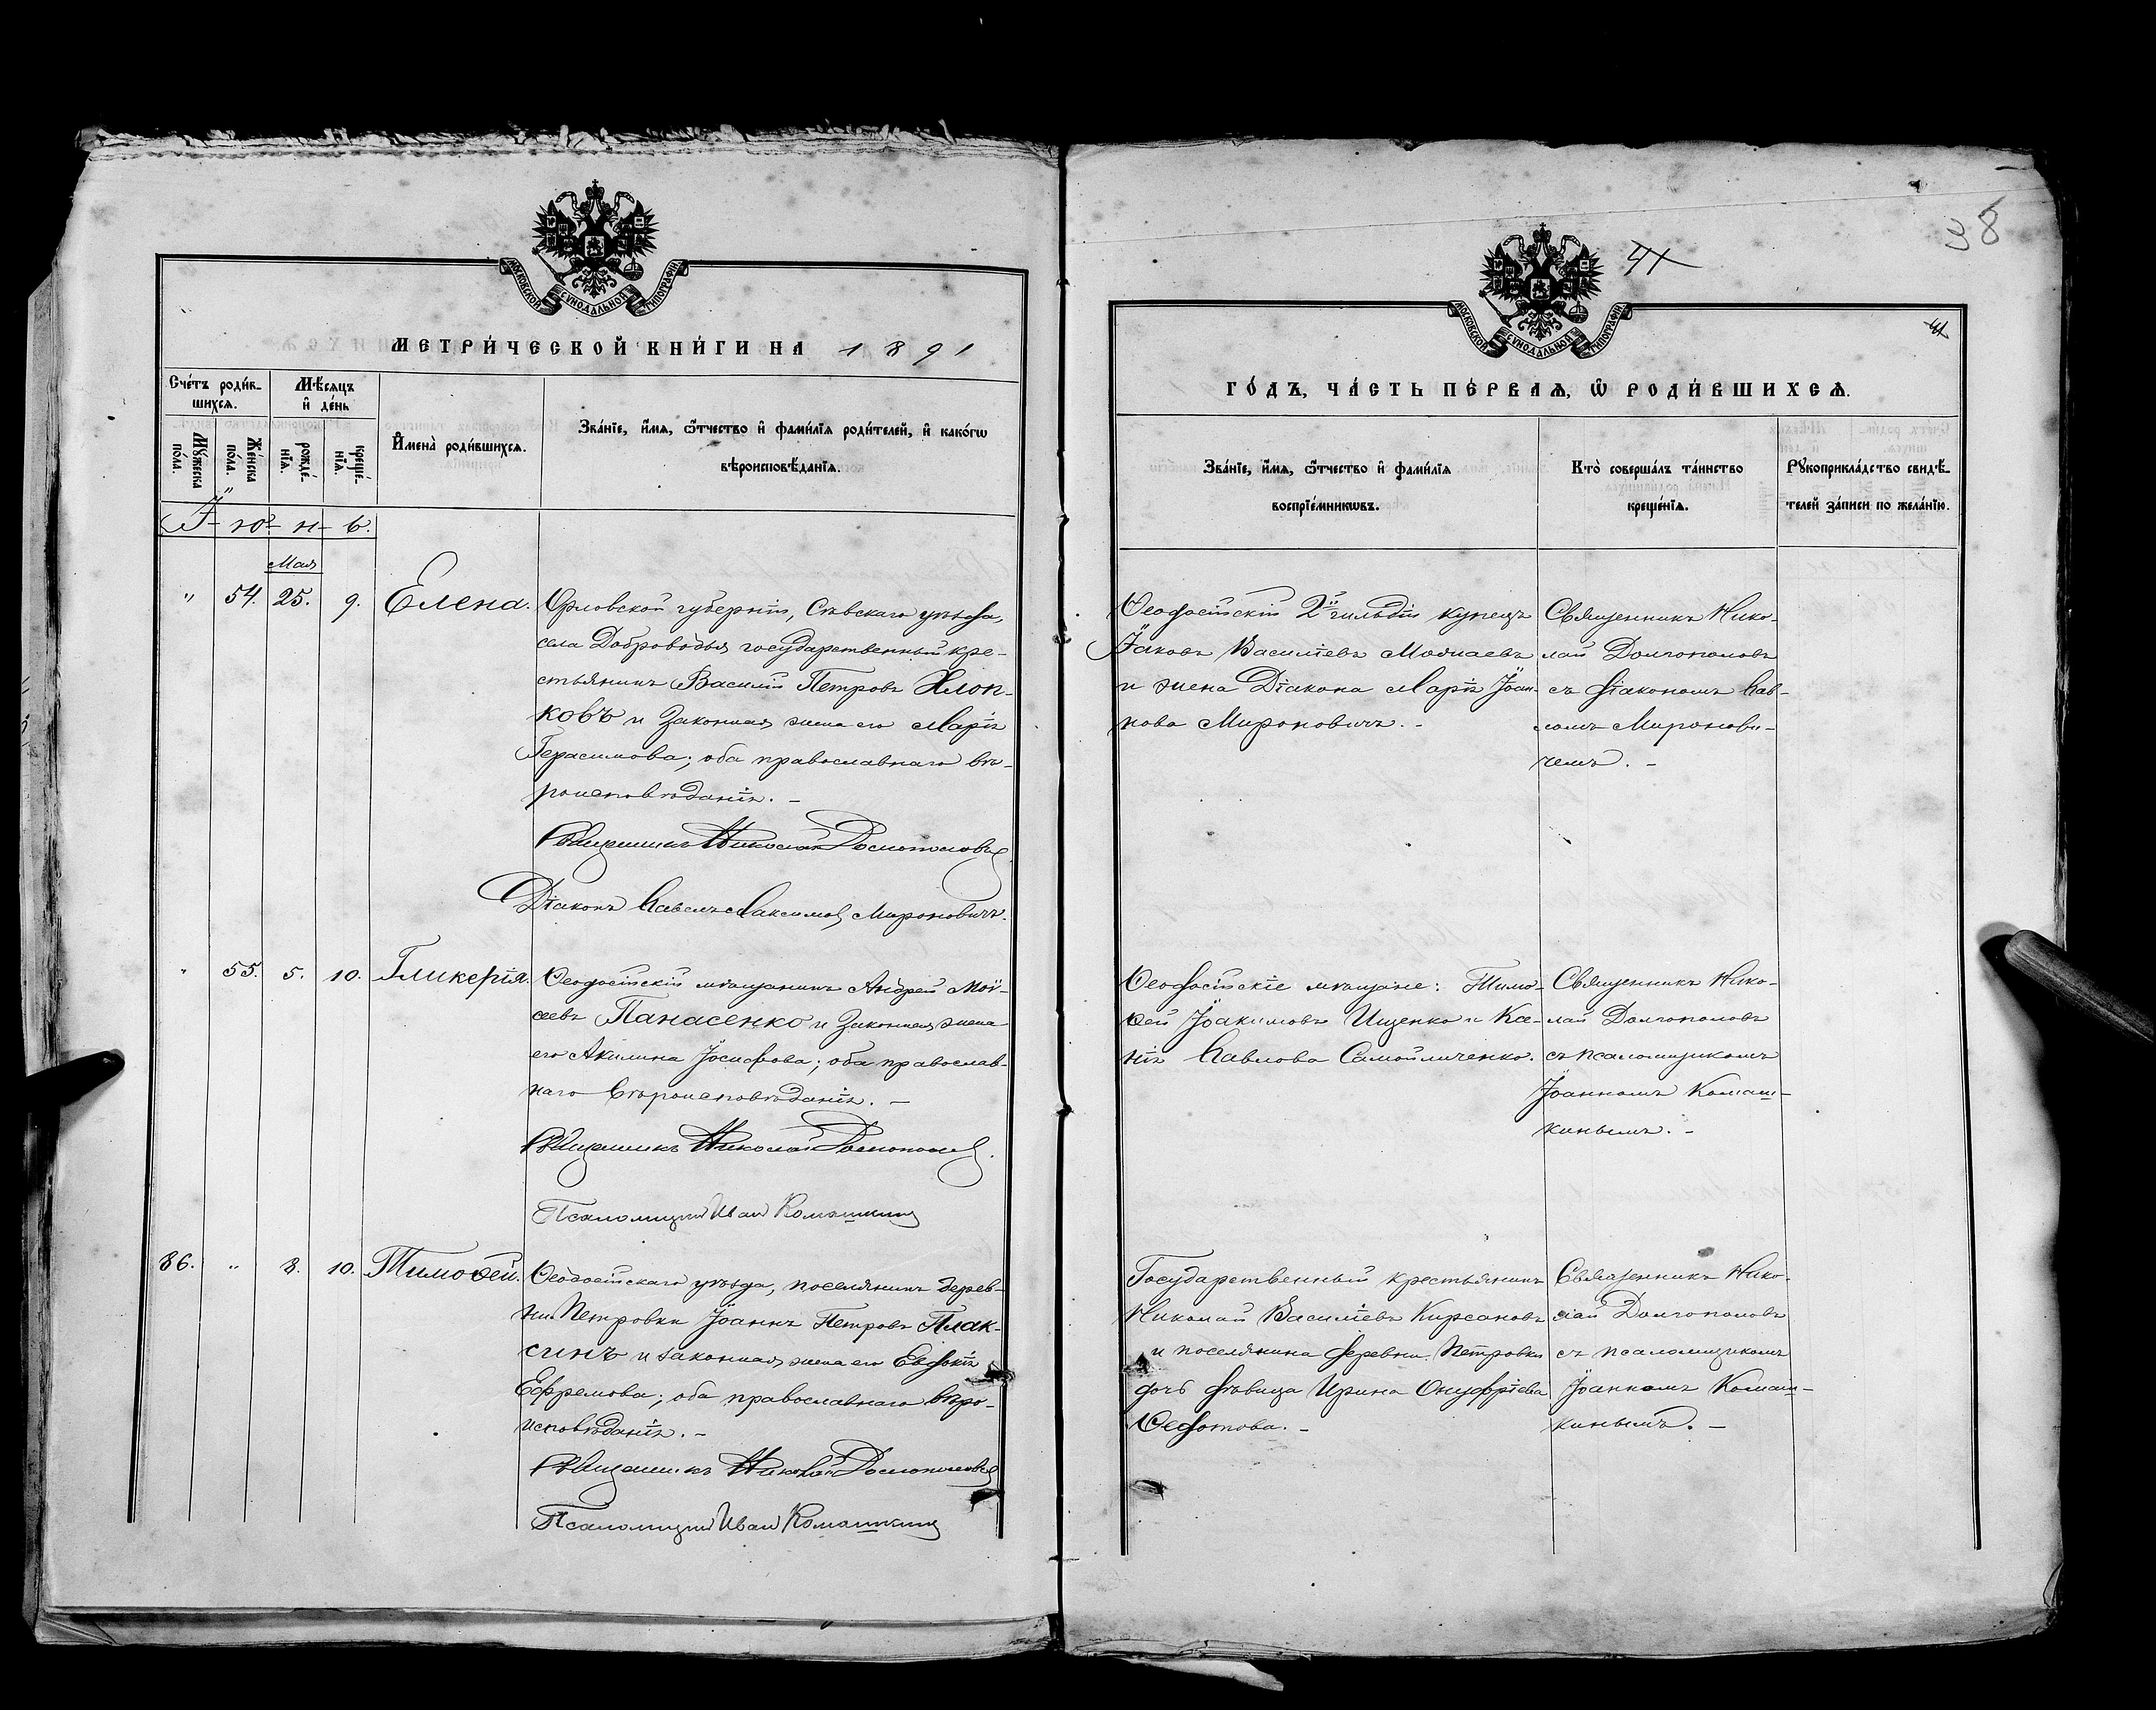 МОСКОВСКОЙ СѴНОДАЛЬНОЙ ТИПОГРАФІИ.
МЕТРИ́ЧЕСКОЙ КНИ́ГИ НА 1891
Сче́тъ роди́в-
шихсѧ.
Мѣ́сѧцъ
и҆ де́нь
Мꙋ́жеска
по́ла.
Же́нска
по́ла.
рожде́-
нїѧ.
креще́-
нїѧ.
И҆мена̀ роди́вшихсѧ.
Зва́нїе, и҆́мѧ, ѻ҆́тчество и҆ фами́лїѧ роди́телей, и҆ како́гѡ
вѣроисповѣ́данїѧ.
І-ю-н-ь.
Мая
" 54. 25. 9. Елена.
Орловской губерніи, Сѣвскаго уѣзда,
села Доброводья государственный кре-
стьянинъ Василій Петровъ Хлоп-
ковъ и законная жена его Марія
Герасимова; оба православнаго вѣ-
роисповѣданія. –
Священникъ Николай Долгополовъ
Діаконъ Павелъ Максимов Мироновичъ.
" 55. 5. 10. Гликерія.
Ѳеодосійскій мѣщанинъ Андрей Мої-
сеевъ Панасенко и законная жена
его Акилина Іосифова; оба православ-
наго вѣроисповѣданія. –
Священникъ Николай Долгополов.
Псаломщикъ Иван Комашкинъ
86. " 8. 10. Тимоѳей.
Ѳеодосійскаго уѣзда, поселянинъ дерев-
ни Петровки Іоаннъ Петровъ Плак-
синъ и законная жена его Евдокія
Ефремова; оба православнаго вѣро-
исповѣданія. –
Священникъ Николай Долгополовъ
Псаломщикъ Иван Комашкинъ
38
41
МОСКОВСКОЙ СѴНОДАЛЬНОЙ ТИПОГРАФІИ.
41
ГО́ДЪ, ЧА́СТЬ ПЕ́РВАѦ, Ѡ҆ РОДИ́ВШИХСѦ.
Зва́нїе, и҆́мѧ, ѻ҆́тчество и҆ фами́лїѧ
воспрїе́мникѡвъ.
Кто̀ соверша́лъ та́инство
креще́нїѧ.
Рꙋкоприкла́дство свидѣ́-
телей за́писи по жела́нїю.
Ѳеодосійскій 2й гильдіи купецъ
Іаковъ Василіевъ Мошаевъ
и жена Діакона Марія Іоан-
нова Мироновичъ. –
Священникъ Нико-
лай Долгополовъ
съ діакономъ Пав-
ломъ Миронови-
чемъ. –
Ѳеодосійскіе мѣщане: Тимо-
ѳей Іоакимовъ Ищенко и Ксе-
нія Павлова Самойличенко.
Священникъ Нико-
лай Долгополовъ
съ псаломщикомъ
Іоанномъ Комаш-
кинымъ. –
Государственный крестьянинъ
Николай Василіевъ Кирсановъ
и поселянина деревни Петровки
дочь дѣвица Ирина Онуфріева
Ѳедотова. –
Священникъ Нико-
лай Долгополовъ
съ псаломщикомъ
Іоанномъ Комаш-
кинымъ. –